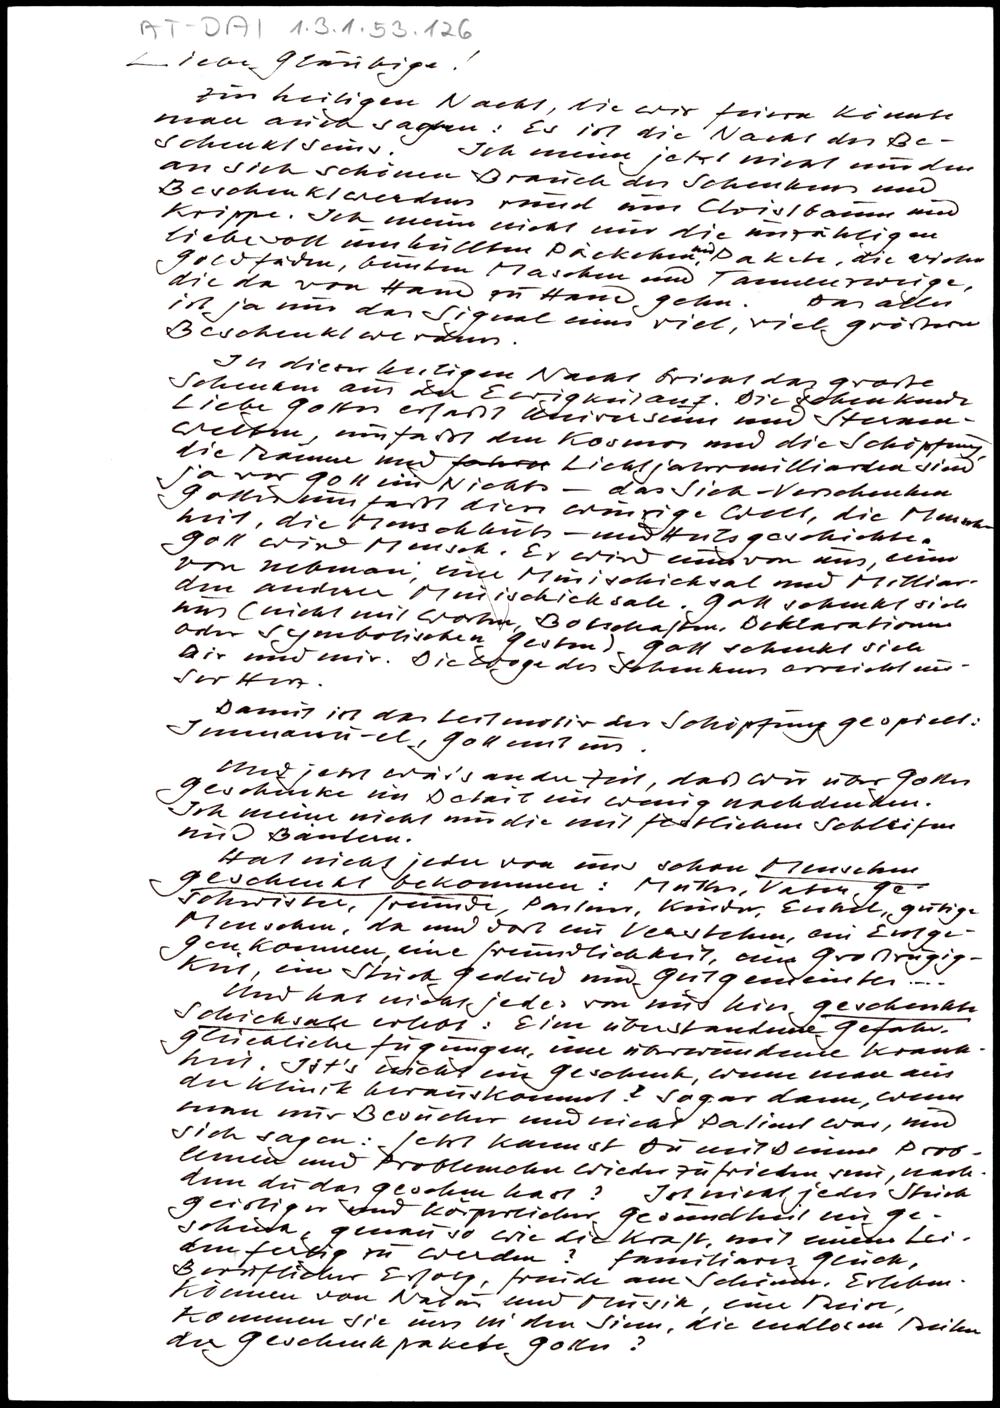 AT-DAI 1.3.1.53.126
Liebe Gläubige!
Zur heiligen Nacht, die wir feiern könnte
man auch sagen: Es ist die Nacht des Be-
schenktseins. Ich meine jetzt nicht nur den
an sich schönen Brauch des Schenkens und
Beschenktwerdens rund um Christbaum und
Krippe. Ich meine nicht nur die unzähligen
liebevoll umhüllten Päckchen und Pakete, die vielen
Goldfäden, bunten Maschen und Tannenzweige,
die da von Hand zu Hand gehn. Das alles
ist ja nur das Signal eines viel, viel größern
Beschenktwerdens.
In dieser heiligen Nacht bricht das große
Schenken aus der Ewigkeit auf. Die schenkende
Liebe Gottes erfaßt Universum und Sternen-
welten, umfaßt den Kosmos und die Schöpfung,
die Räume und Lichtjahrmilliarden sind
ja vor Gott ein Nichts – das Sich-Verschenken
Gottes umfaßt diese winzige Welt, die Mensch-
heit, die Menschheits- und Heilsgeschichte.
Gott wird Mensch. Er wird einer von uns, einer
von nebenan, ein Minischicksal und Milliar-
den anderer Minischicksale. Gott schenkt sich
uns (nicht mit Worten, Botschaften, Deklarationen
oder symbolischen Gesten). Gott schenkt sich
Dir und mir. Die Woge des Schenkens erreicht un-
ser Herz.
Damit ist das Leitmotiv der Schöpfung gespielt:
Immanu-el, Gott mit uns.
Und jetzt wär's an der Zeit, daß wir über Gottes
Geschenke im Detail ein wenig nachdenken.
Ich meine nicht nur die mit festlichen Schleifen
und Bändern.
Hat nicht jeder von uns schon Menschen
geschenkt bekommen: Mutter, Vater, Ge-
schwister, Freunde, Partner, Kinder, Enkel, gütige
Menschen, da und dort ein Verstehen, ein Entge-
genkommen, eine Freundlichkeit, eine Großzügig-
keit, ein Stück Geduld und Gutgemeintes ....
Und hat nicht jeder von uns hier geschenkte
Schicksale erlebt: Eine überstandene Gefahr,
glückliche Fügungen, eine überwundene Krank-
heit. Ist's nicht ein Geschenk, wenn man aus
der Klinik herauskommt? Sogar dann, wenn
man nur Besucher und nicht Patient war, und
sich sagen: Jetzt kannst Du mit Deinen Prob-
lemen und Problemchen wieder zufrieden sein, nach-
dem du das gesehen hast? Ist nicht jedes Stück
geistiger und körperlicher Gesundheit ein Ge-
schenk, genau so wie die Kraft, mit einem Lei-
den fertig zu werden? Familiäres Glück,
Beruflicher Erfolg, Freude am Schönen, Erleben-
können von Natur und Musik, eine Reise,
Kommen sie uns in den Sinn, die endlosen Reihen
der Geschenkpakete Gottes?